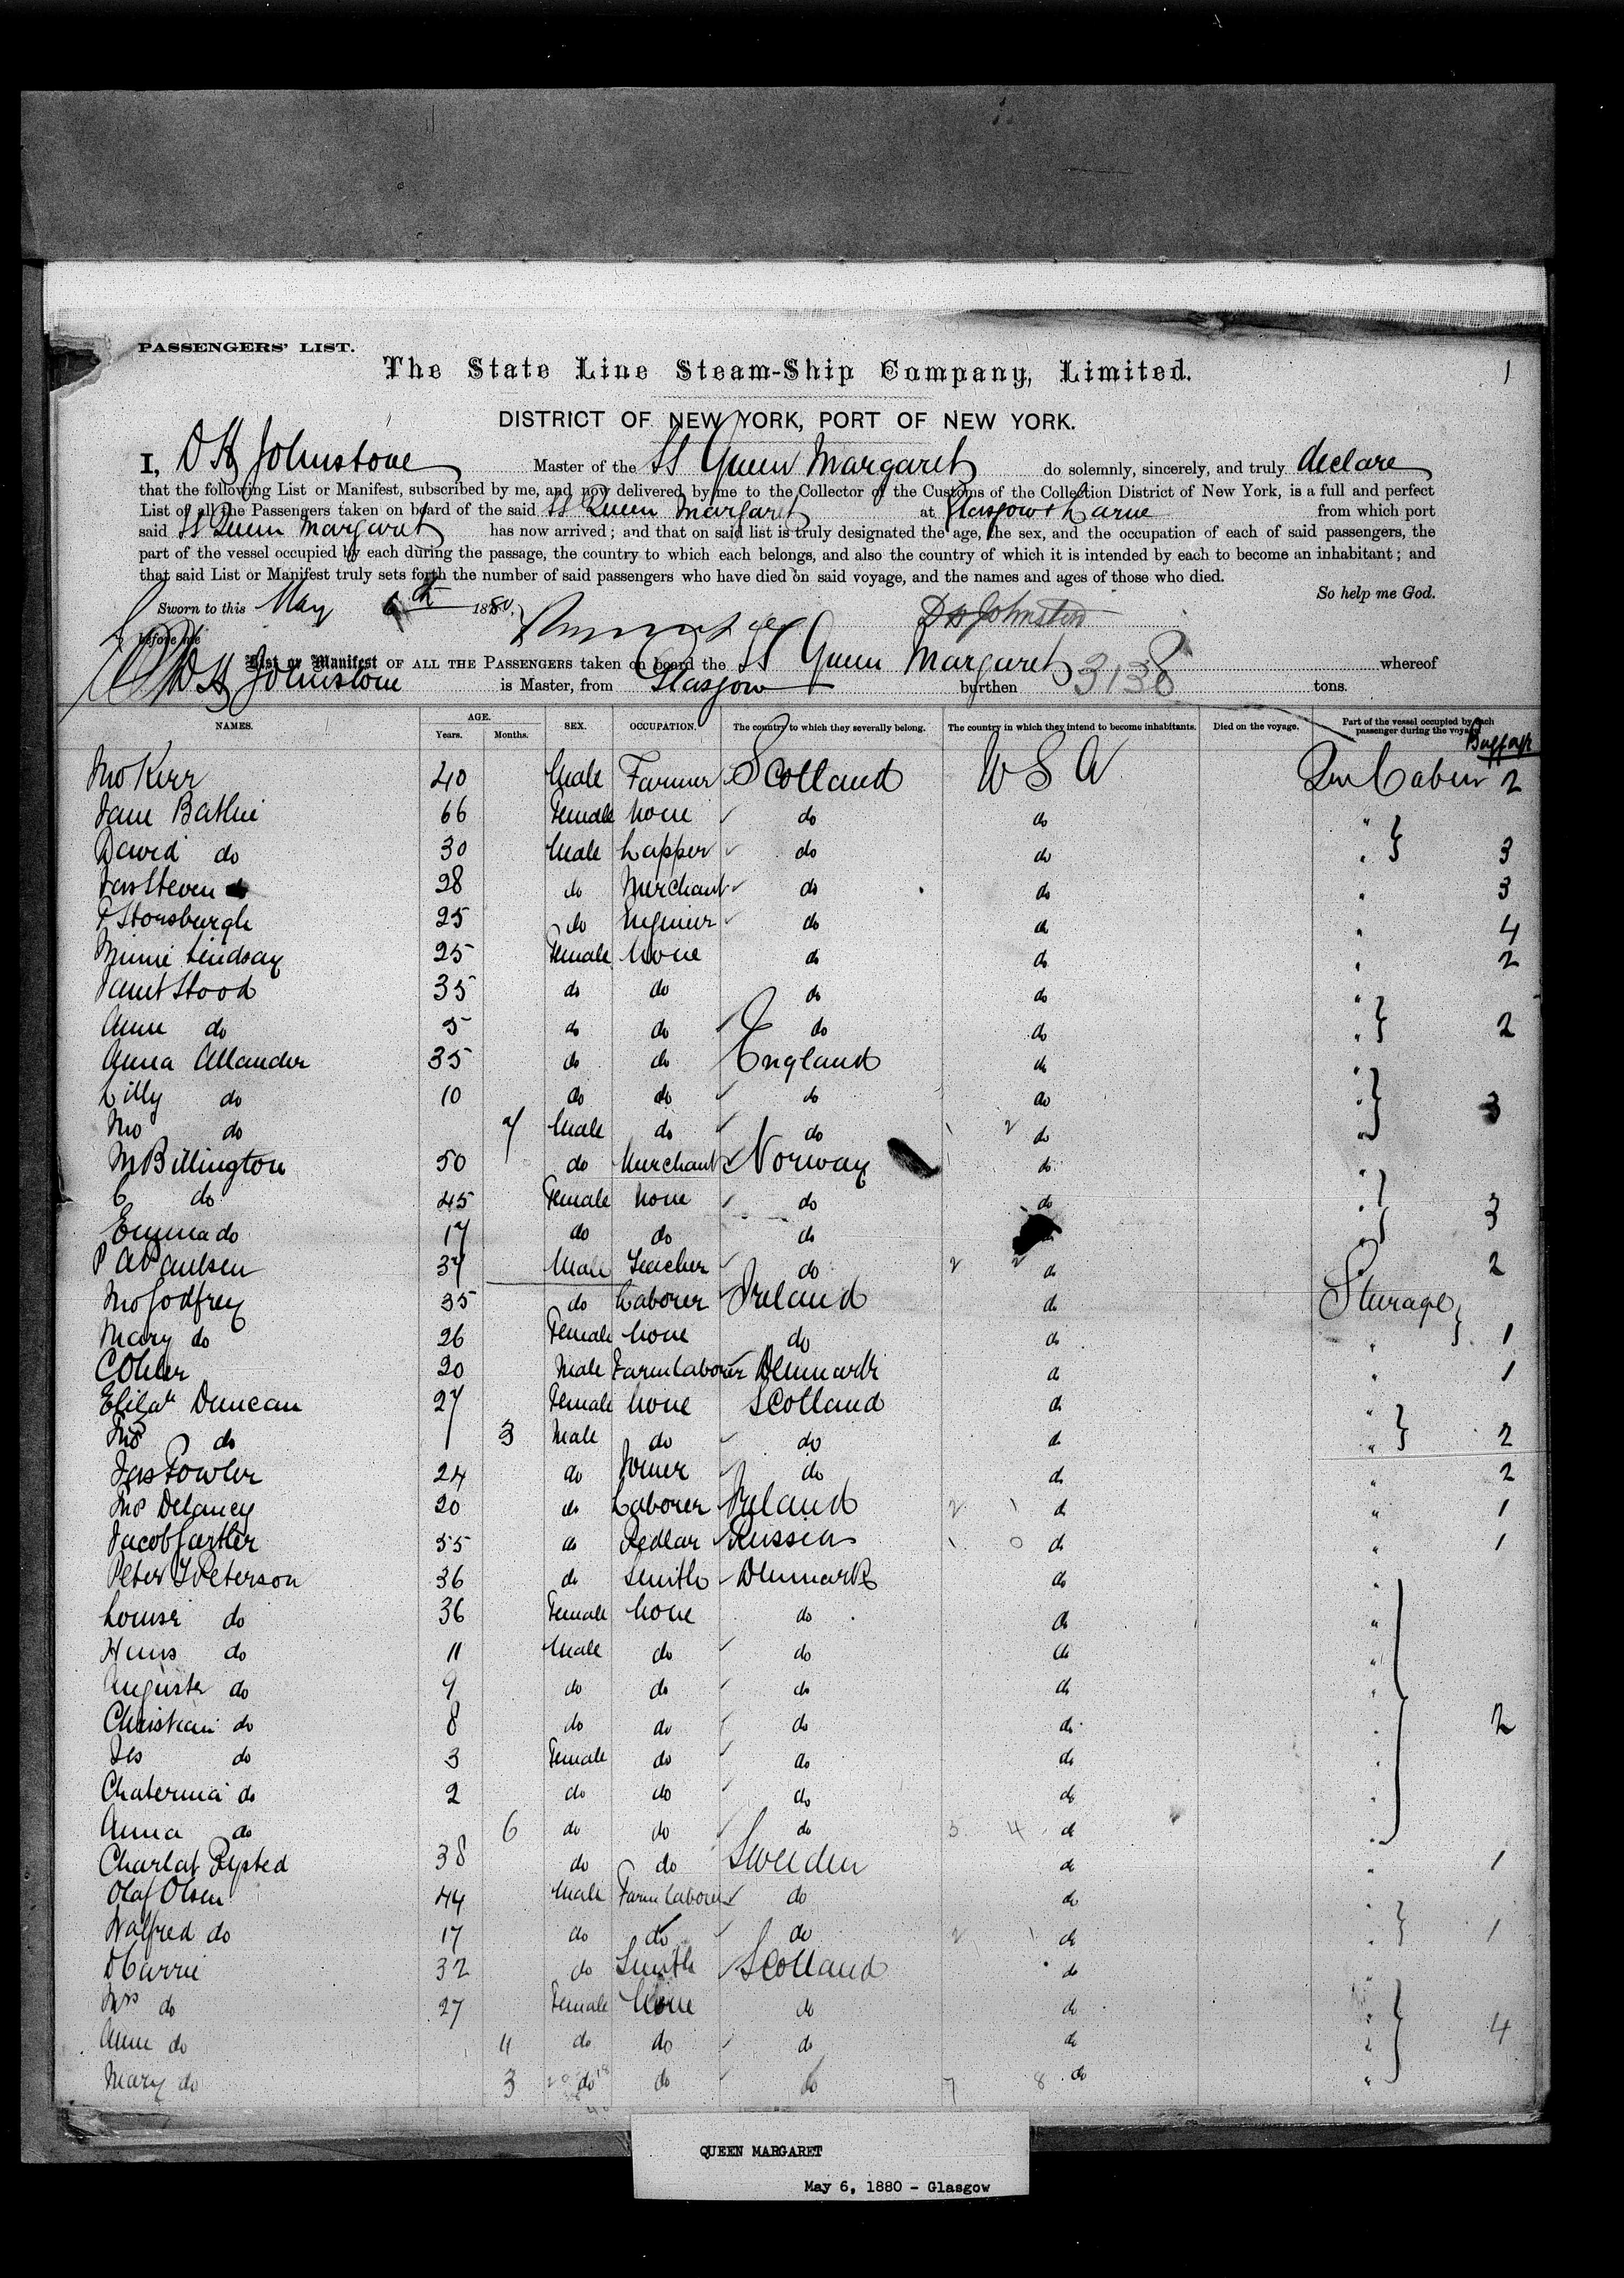 1
PASSENGERS' LIST.
The State Line Steam-Ship Company, Limited.
DISTRICT OF NEW YORK, PORT OF NEW YORK.
I, D H Johnstone Master of the SS Queen Margaret do solemnly, sincerely, and truly declare
that the following List or Manifest, subscribed by me, and now delivered by me to the Collector of the Customs of the Collection District of New York, is a full and perfect
List of all the Passengers taken on board of the said SS Queen Margaret at Glasgow & Larne from which port
said SS Queen Margaret has now arrived; and that on said list is truly designated the age, the sex, and the occupation of each of said passengers, the
part of the vessel occupied by each during the passage, the country to which each belongs, and also the country of which it is intended by each to become an inhabitant; and
that said List or Manifest truly sets forth the number of said passengers who have died on said voyage, and the names and ages of those who died.
So help me God.
Sworn to this May 6th 1880. D H Johnston
before me
List or Manifest OF ALL THE PASSENGERS taken on board the SS Queen Margaret whereof
D H Johnstone is Master, from Glasgow burthen 3138 tons.
NAMES. AGE. Years. Months. SEX. OCCUPATION. The country to which they severally belong. The country in which they intend to become inhabitants. Died on the voyage. Part of the vessel occupied by each passenger during the voyage. Baggage
Jno Kerr 40 Male Farmer Scotland U S A Cabin 2
Jane 66 Female None do do "
David do 30 Male Lapper do do " 3
Jas Steven 28 do Merchant do do " 3
25 do Engineer do do " 4
Minnie Lindsay 25 Female None do do " 2
Janet Stood 35 do do do do "
Anne do 5 do do do do " 2
Anna Allander 35 do do England do "
Lilly do 10 do do do do " 3
Jno do 7 Male do do do "
M Billington 50 do Merchant Norway do "
C do 45 Female None do do " 3
Emma do 17 do do do "
P A Paulsen 37 Male Teacher do do " 2
Jno Godfrey 35 do Laborer Ireland do Sturage
Mary do 26 Female None do do " 1
C Ohler 20 Male Farm Laborer Denmark do " 1
Elizath Duncan 27 Female None Scotland do "
Jno do 1 3 Male do do do " 2
Jas Fowler 24 do Joiner do do " 2
Jno Delaney 20 do Laborer Ireland do " 1
Jacob 55 do Pedlar Russia do " 1
Peter Peterson 36 do Smith Denmark do "
Louise do 36 Female None do do "
Hans do 11 Male do do do "
Auguste do 9 do do do do "
Christian do 8 do do do do " 2
do 3 Female do do do "
Chaterina do 2 do do do do "
Anna do 6 do do do do "
38 do do Sweden do " 1
Olaf Olsen 44 Male Farm Laborer do do "
Walfred do 17 do do do do " 1
D Currie 32 do Smith Scotland do "
Mrs do 27 Female None do do "
Anne do 11 do do do do " 4
Mary do 3 do do do do "
QUEEN MARGARET
May 6, 1880 - Glasgow